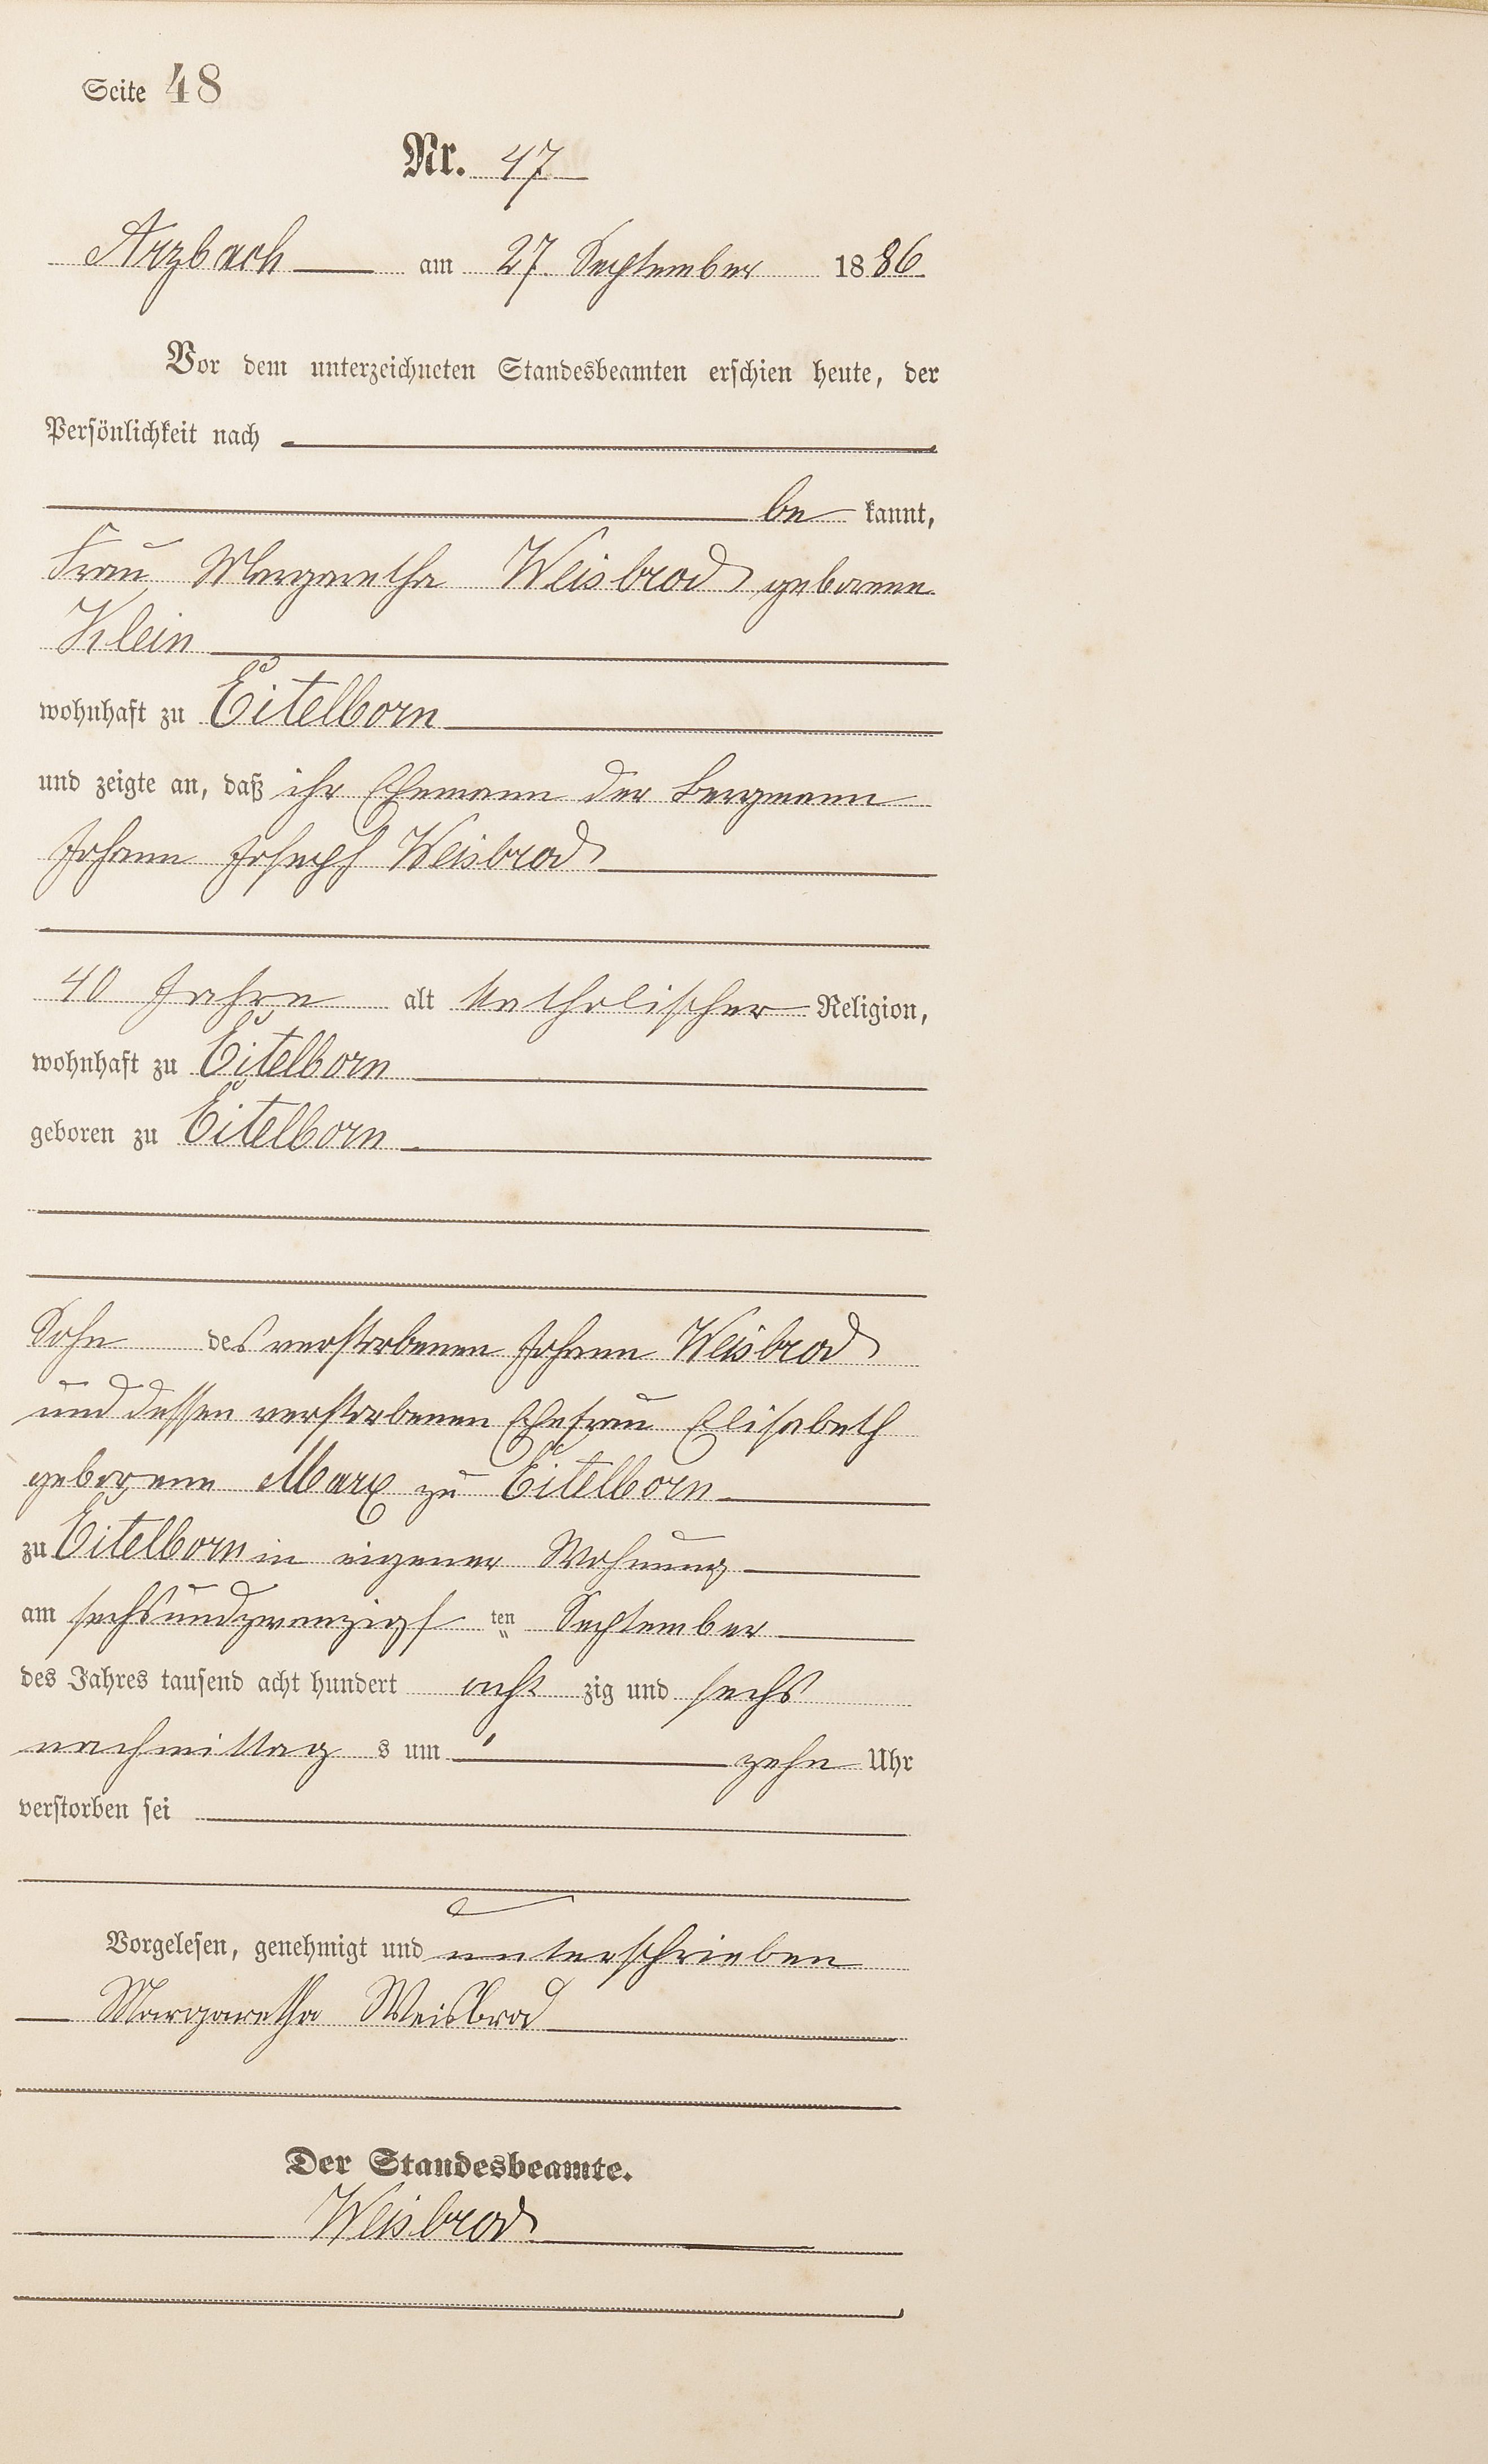 Seite 48
Nr. 47
Arzbach am 27. September 1886.
Vor dem unterzeichneten Standesbeamten erschien heute, der
Persönlichkeit nach
be kannt,
Frau Margaretha Weisbrod geborene
Klein
wohnhaft zu Eitelborn
und zeigte an, daß ihr Ehemann der Bergmann
Johann Joseph Weisbrod
40 Jahre alt katholischer Religion,
wohnhaft zu Eitelborn
geboren zu Eitelborn
Sohn des verstorbenen Johann Weisbrod
und dessen verstorbenen Ehefrau Elisabeth
geborene Marx zu Eitelborn
zu Eitelborn in eigener Wohnung
am sechsundzwanzigsten September
des Jahres tausend acht hundert acht zig und sechs
nachmittag s um zehn Uhr
verstorben sei
Vorgelesen, genehmigt und unterschrieben
Margaretha Weisbrod
Der Standesbeamte.
Weisbrod